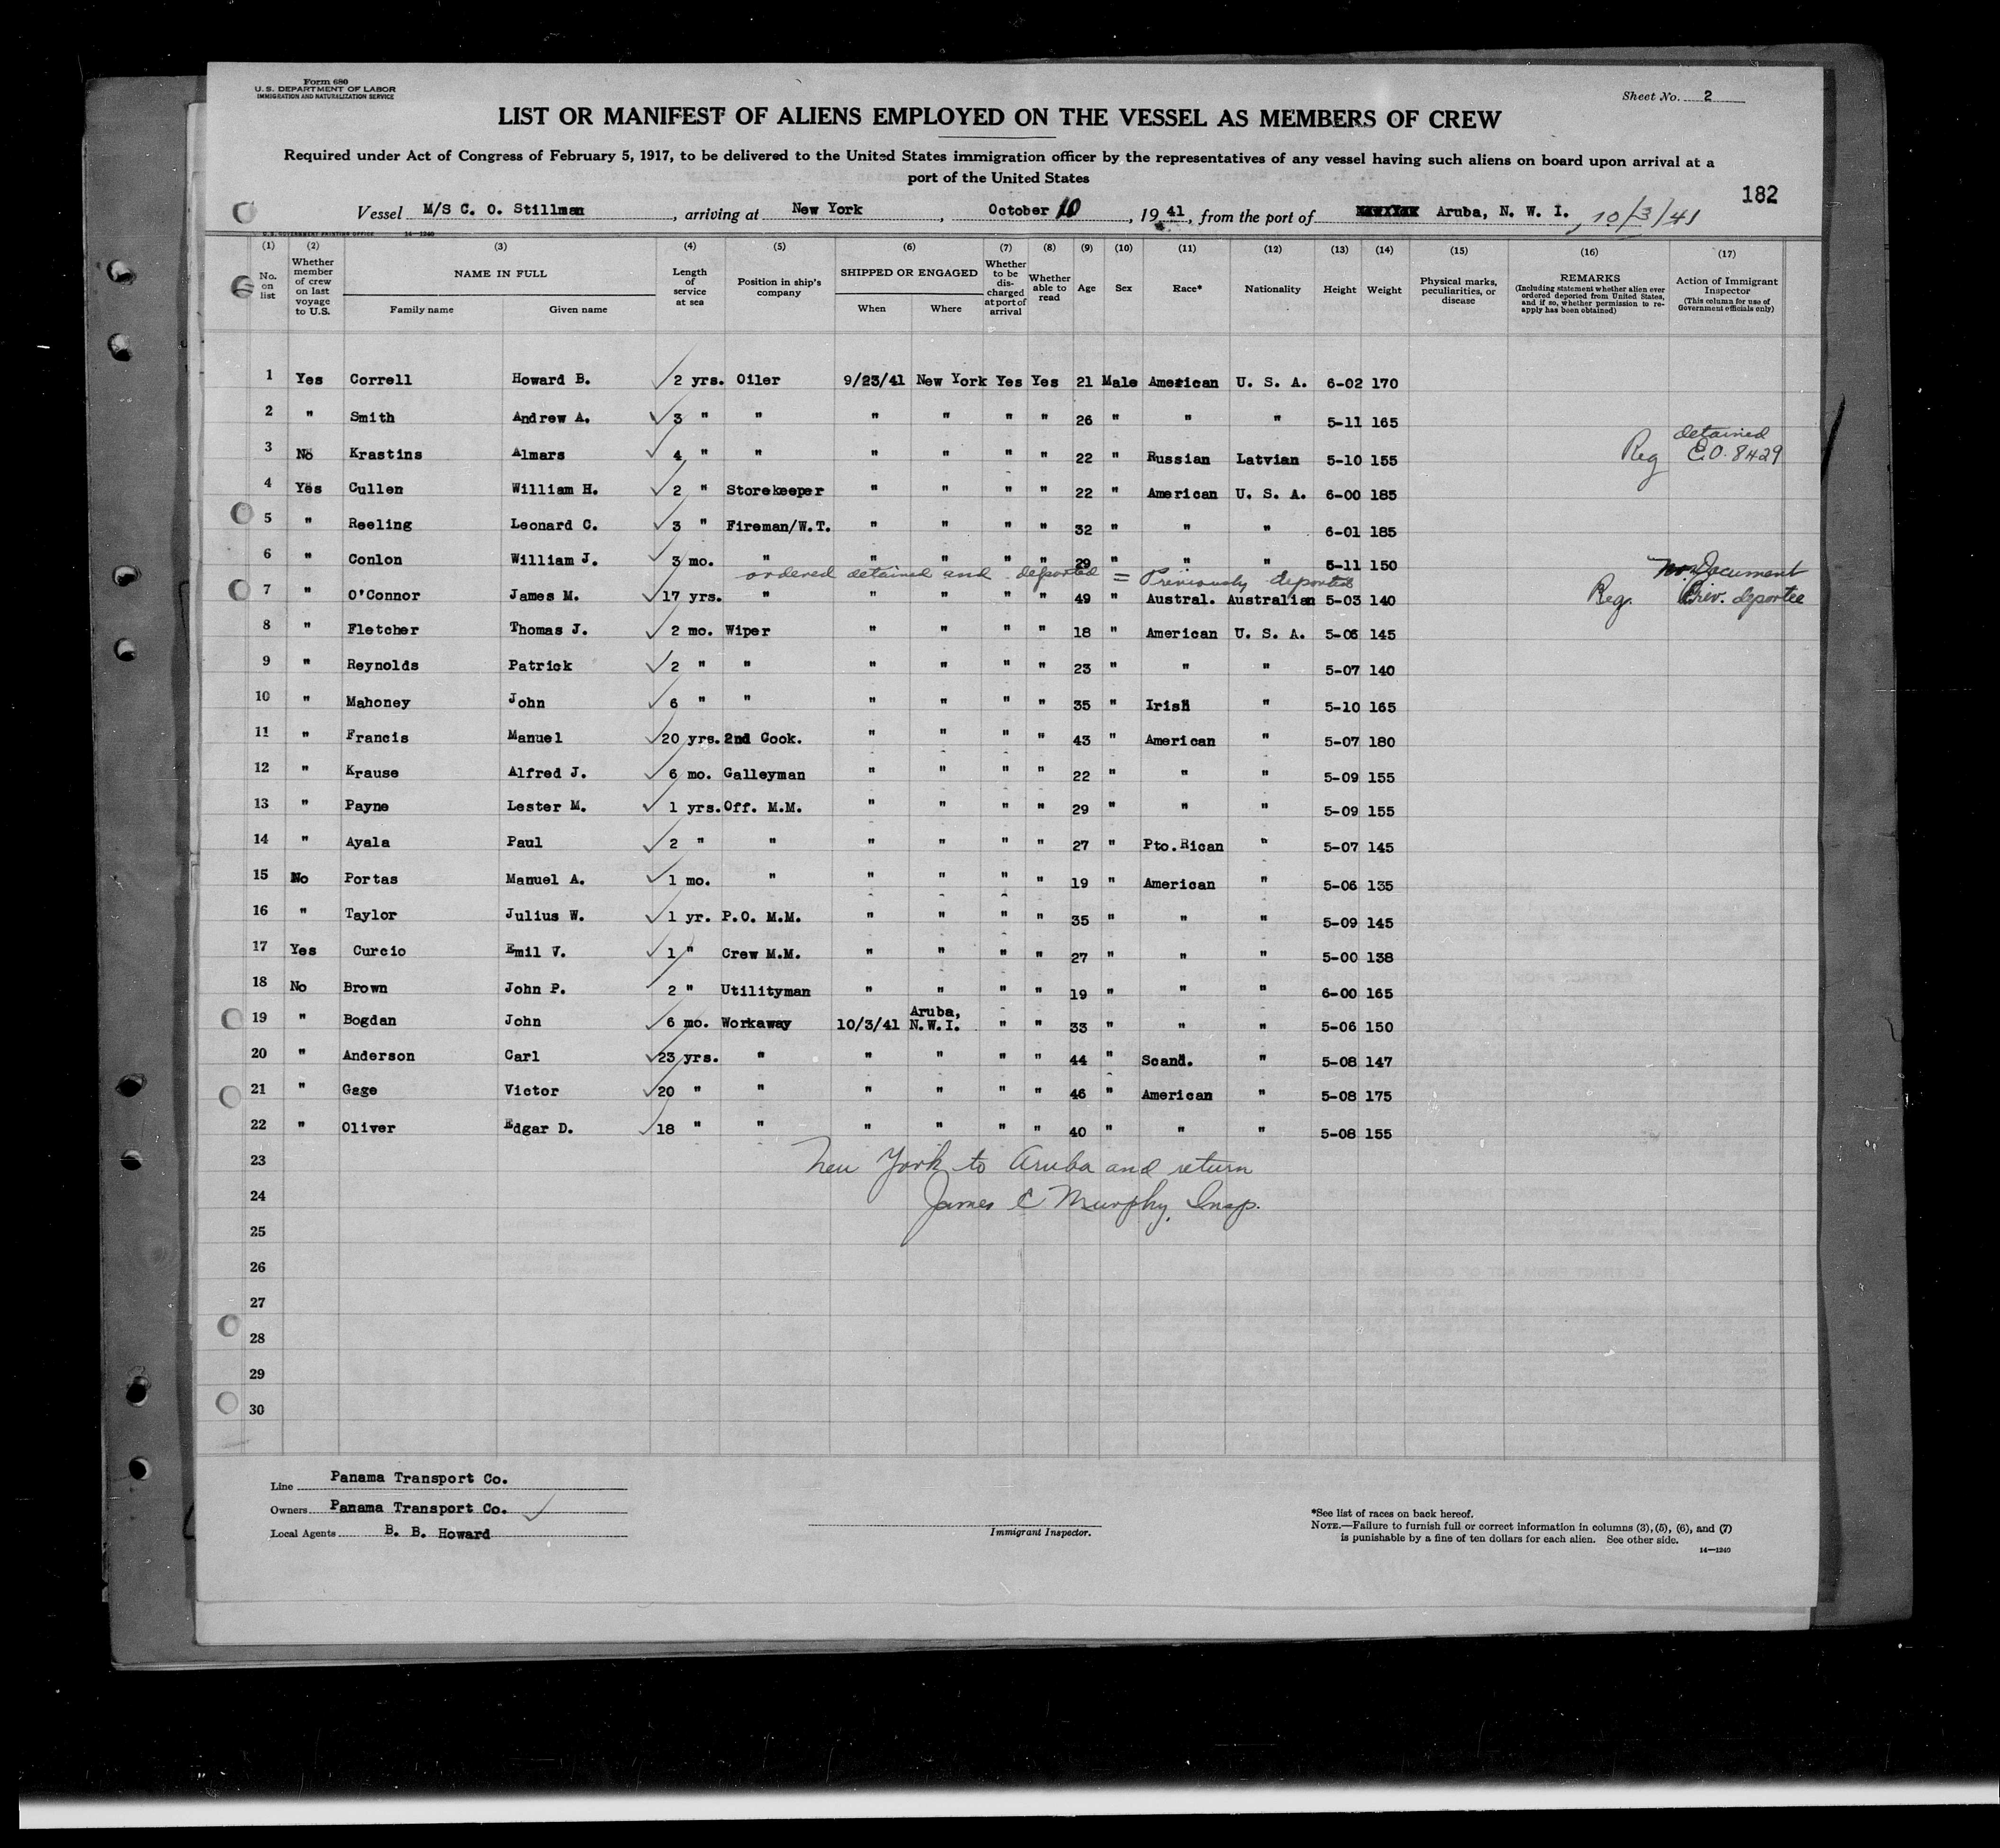 Form 680
U. S. DEPARTMENT OF LABOR
IMMIGRATION AND NATURALIZATION SERVICE
Sheet No. 2
LIST OR MANIFEST OF ALIENS EMPLOYED ON THE VESSEL AS MEMBERS OF CREW
Required under Act of Congress of February 5, 1917, to be delivered to the United States immigration officer by the representatives of any vessel having such aliens on board upon arrival at a
port of the United States
182
Vessel M/S C. O. Stillman, arriving at New York, October 10, 1941, from the port of Aruba, N. W. I., 10/3/41
U. S. GOVERNMENT PRINTING OFFICE 14—1240
(1) (2) (3) (4) (5) (6) (7) (8) (9) (10) (11) (12) (13) (14) (15) (16) (17)
No. on list
Whether member of crew on last voyage to U.S.
NAME IN FULL
Family name Given name
Length of service at sea
Position in ship's company
SHIPPED OR ENGAGED
When Where
Whether to be discharged at port of arrival
Whether able to read
Age
Sex
Race*
Nationality
Height
Weight
Physical marks, peculiarities, or disease
REMARKS
(Including statement whether alien ever ordered deported from United States, and if so, whether permission to reapply has been obtained)
Action of Immigrant Inspector
(This column for use of Government officials only)
1 Yes Correll Howard B. 2 yrs. Oiler 9/23/41 New York Yes Yes 21 Male American U. S. A. 6-02 170
2 " Smith Andrew A. 3 " " " " " " 26 " " " 5-11 165
detained
3 No Krastins Almars 4 " " " " " " 22 " Russian Latvian 5-10 155 Reg E.O. 8429
4 Yes Cullen William H. 2 " Storekeeper " " " " 22 " American U. S. A. 6-00 185
5 " Reeling Leonard C. 3 " Fireman/W.T. " " " " 32 " " " 6-01 185
6 " Conlon William J. 3 mo. " " " " " 29 " " " 5-11 150
ordered detained and deported = Previously deported No Document
7 " O'Connor James M. 17 yrs. " " " " " 49 " Austral. Australian 5-03 140 Reg. Prev. deportee
8 " Fletcher Thomas J. 2 mo. Wiper " " " " 18 " American U. S. A. 5-06 145
9 " Reynolds Patrick 2 " " " " " " 23 " " " 5-07 140
10 " Mahoney John 6 " " " " " " 35 " Irish " 5-10 165
11 " Francis Manuel 20 yrs. 2nd Cook. " " " " 43 " American " 5-07 180
12 " Krause Alfred J. 6 mo. Galleyman " " " " 22 " " " 5-09 155
13 " Payne Lester M. 1 yrs. Off. M.M. " " " " 29 " " " 5-09 155
14 " Ayala Paul 2 " " " " " " 27 " Pto.Rican " 5-07 145
15 No Portas Manuel A. 1 mo. " " " " " 19 " American " 5-06 135
16 " Taylor Julius W. 1 yr. P.O. M.M. " " " " 35 " " " 5-09 145
17 Yes Curcio Emil V. 1 " Crew M.M. " " " " 27 " " " 5-00 138
18 No Brown John P. 2 " Utilityman " " " " 19 " " " 6-00 165
19 " Bogdan John 6 mo. Workaway 10/3/41 Aruba, N.W.I. " " 33 " " " 5-06 150
20 " Anderson Carl 23 yrs. " " " " " 44 " Scand. " 5-08 147
21 " Gage Victor 20 " " " " " " 46 " American " 5-08 175
22 " Oliver Edgar D. 18 " " " " " " 40 " " " 5-08 155
23 New York to Aruba and return
24 James C Murphy, Insp.
25
26
27
28
29
30
Line Panama Transport Co.
Owners Panama Transport Co.
Local Agents B. B. Howard
Immigrant Inspector.
*See list of races on back hereof.
NOTE.—Failure to furnish full or correct information in columns (3), (5), (6), and (7)
is punishable by a fine of ten dollars for each alien. See other side.
14—1240